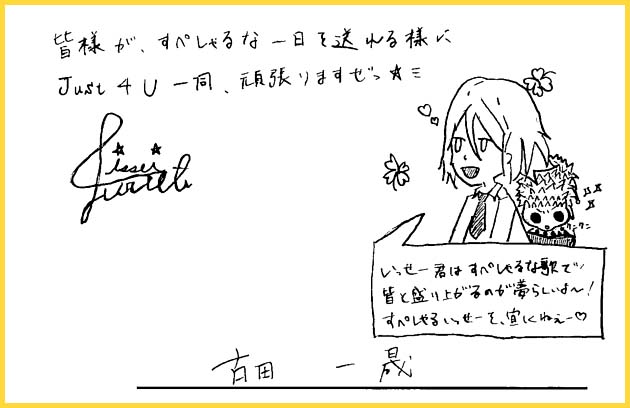 皆様が、すぺしゃるな一日を送れる様に
Just 4 U 一同、頑張りますぜっ☆ミ
いっせー君はすぺしゃるな歌で
皆と盛り上がるのが夢らしいよ〜!
すぺしゃるいっせーを、宜しくねぇー♡
古田 一晟